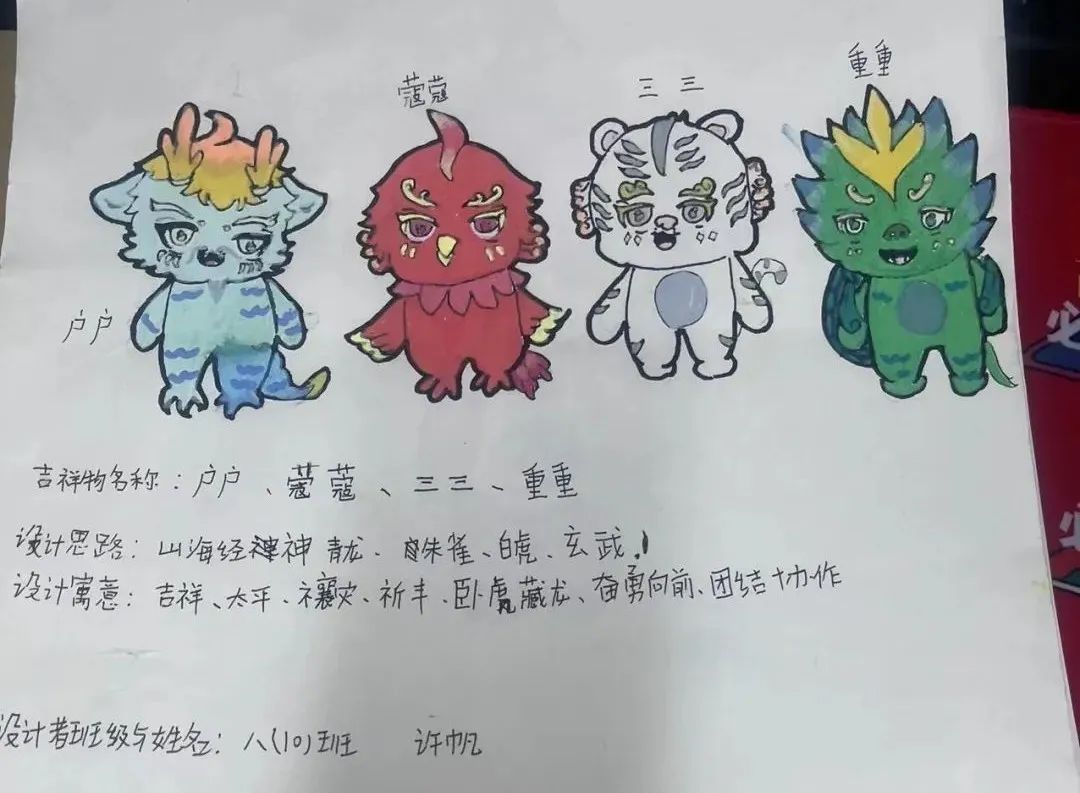 蔻蔻
三三
重重
户户
吉祥物名称：户户、蔻蔻、三三、重重
设计思路：山海经神 青龙、朱雀、白虎、玄武！
设计寓意：吉祥、太平、禳灾、祈丰、卧虎藏龙、奋勇向前、团结协作
设计者班级与姓名：八(10)班 许帆
必
必